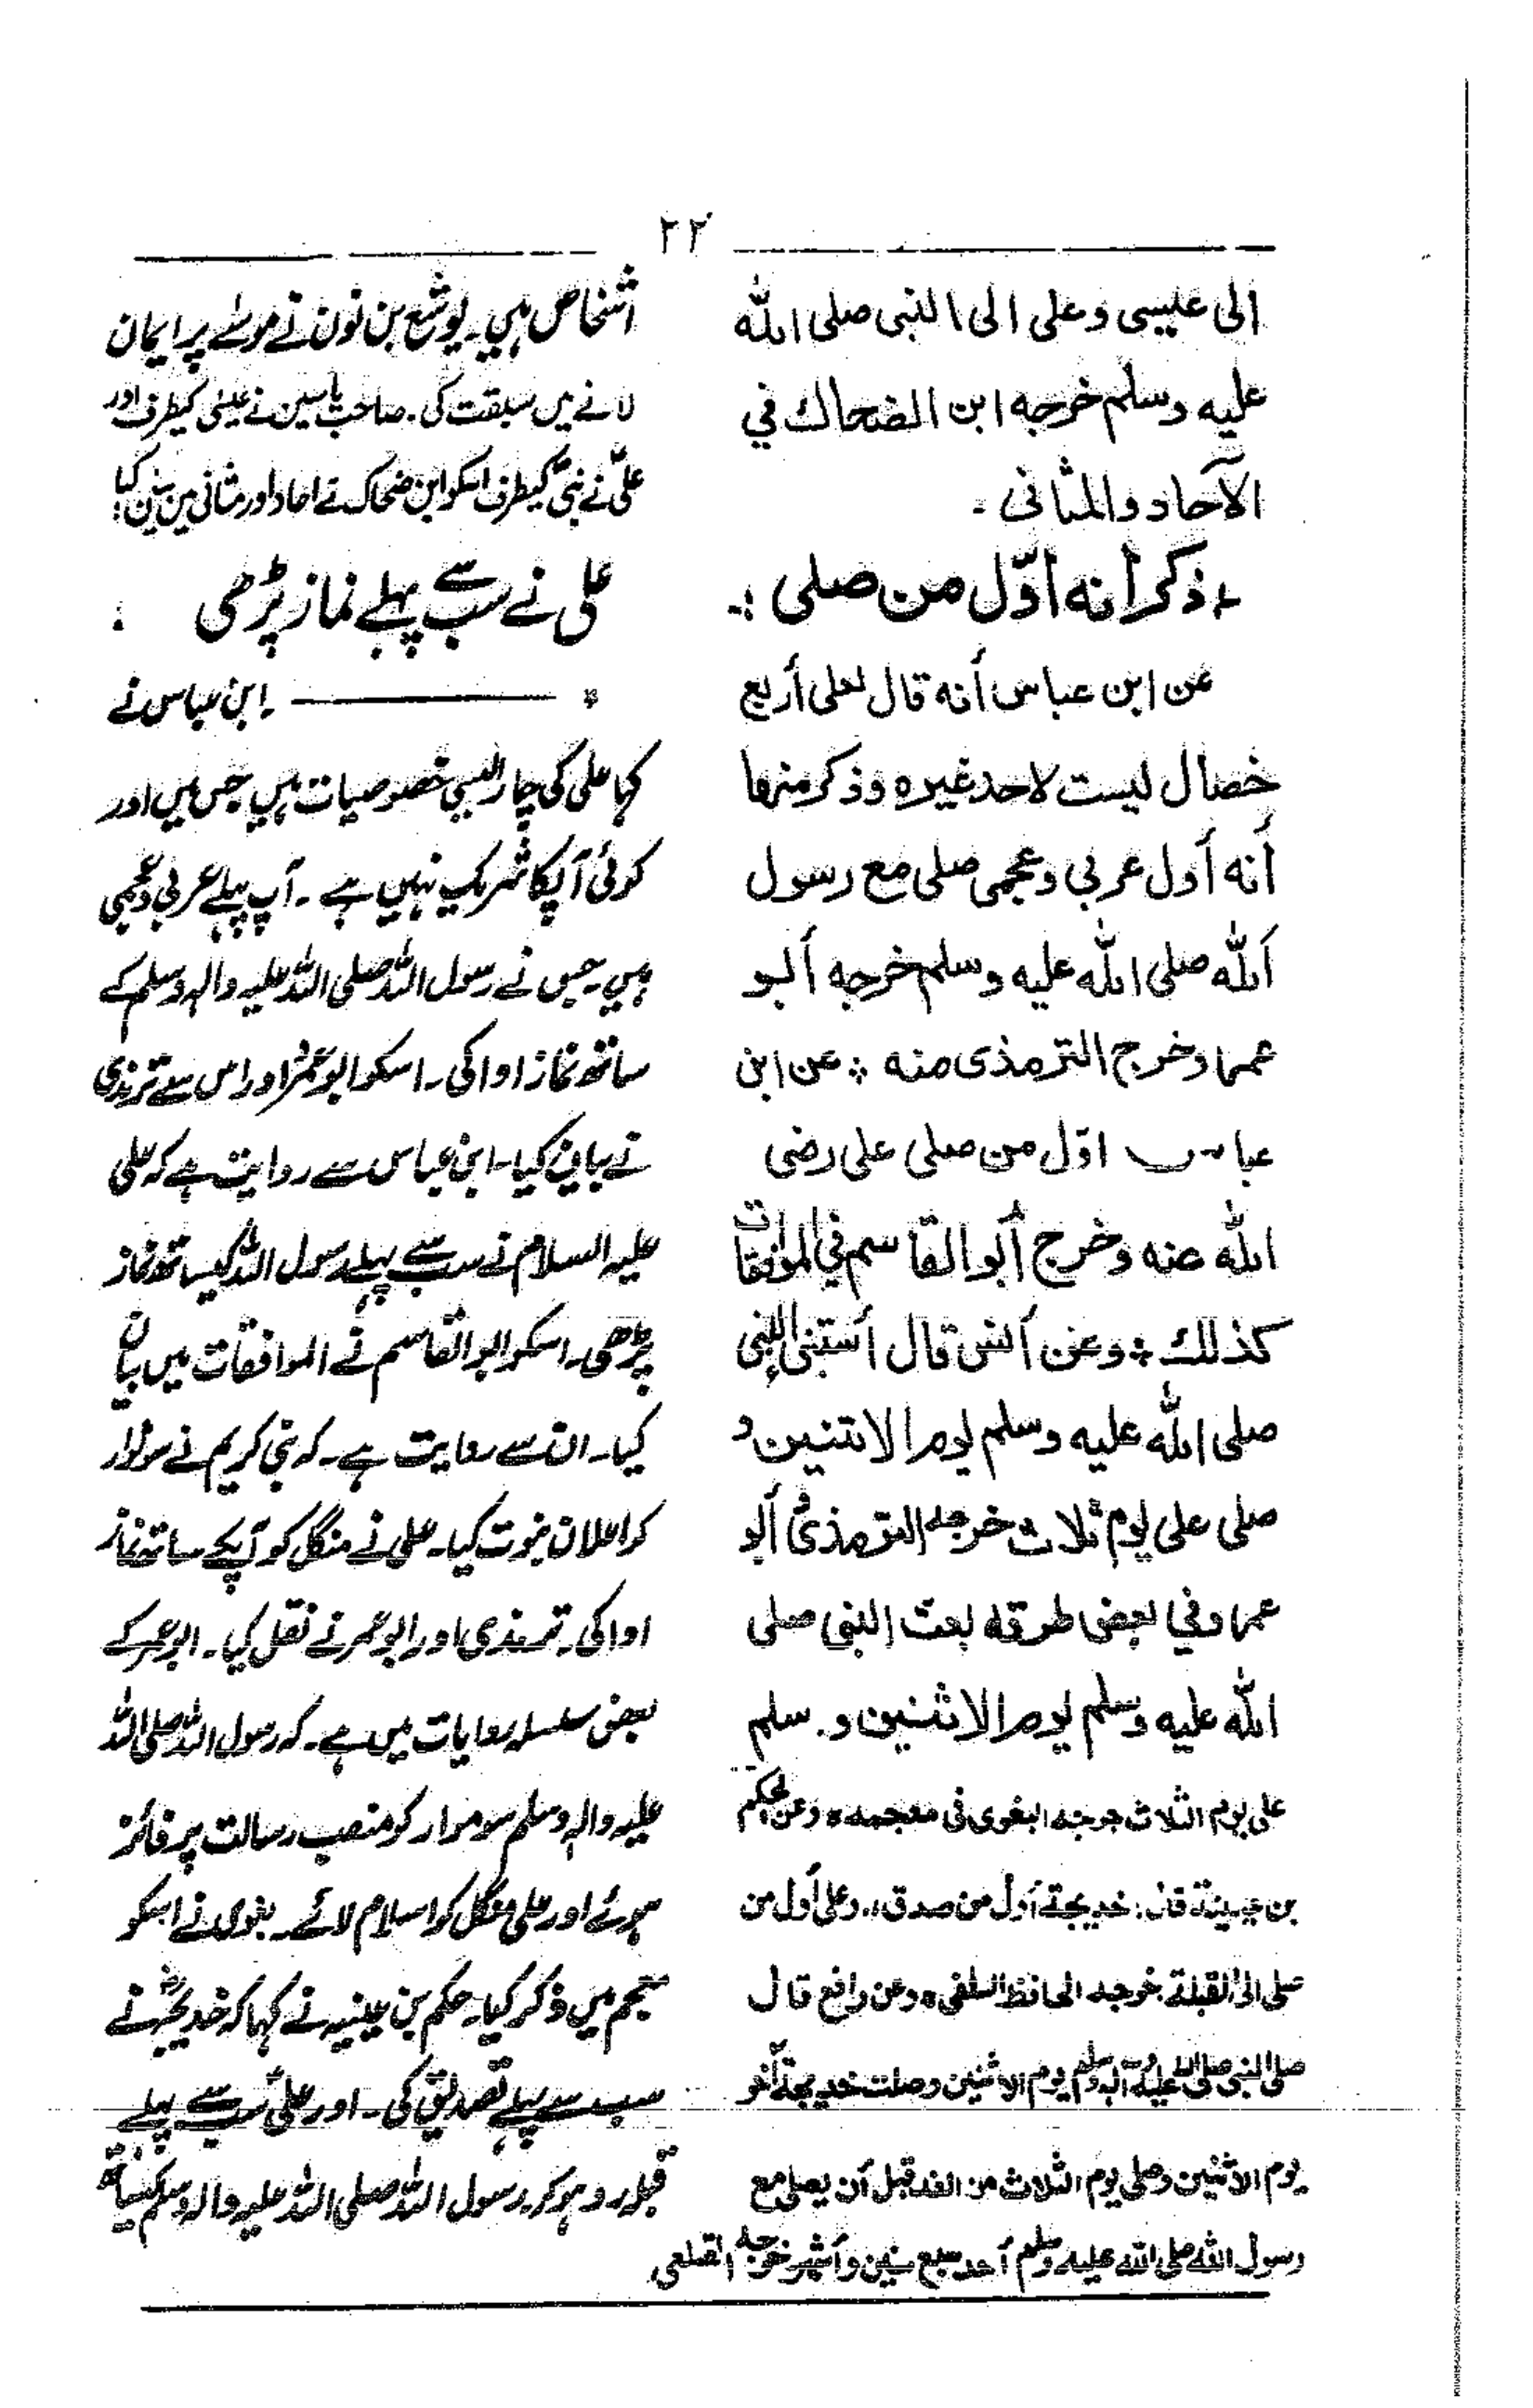 ٢٢
الى عليسى وعلى الى النبى صلى الله
عليه وسلم خرجه ابن الضحاك في
الآحاد والمثانى ـ
ذكر أنه أوّل من صلى
عن ابن عباس أنه قال لعلى أربع
خصال ليست لاحد غيره وذكر منها
أنه أول عربى وعجمى صلى مع رسول
الله صلى الله عليه وسلم خرجه أبو
عمر وخرج الترمذى منه ؞ عن ابن
عباس اوّل من صلى على رضى
الله عنه وخرج أبو القاسم في الموافقات
كذلك ؞ وعن أنس قال أستنبئ النبى
صلى الله عليه وسلم يوم الاثنين و
صلى على يوم ثلاث خرجه الترمذى أبو
عمر وفي بعض طرقه بعث النبي صلى
الله عليه وسلم يوم الاثنين و. سلم
على يوم الثلاث خرجه البغوى فى معجمه ؞ وعن الحكم
بن عيينة قال: خديجة أول من صدق،، وعلى أول من
صلى الى القبلة خرجه الحافظ السلفى ؞ وعن رافع قال
صلى النبى صلى الله عليه وآلہ وسلم يوم الاثنين وصلت خديجة آخر
يوم الاثنين وصلى يوم الثلاث من الغد قبل أن يصلى مع
رسول الله صلى الله عليه وسلم أحد سبع سنين وأشهر خرجه القلعى
اشخاص ہیں۔ یوشع بن نون نے موسٰے پر ایمان
لانے میں سبقت کی۔ صاحب یاسین نے عیسٰی کیطرف اور
علیؑ نے نبیؐ کیطرف اسکو ابن ضحاک نے احاد اور مثانی میں بیان کیا:
علی نے سب سے پہلے نماز پڑھی :
* ——— ۔ ابن عباس نے
کہا علی کی چار ایسی خصوصیات ہیں جس میں اور
کوئی آپکا شریک نہیں ہے ۔ آپ پہلے عربی و عجمی
ہیں جس نے رسول اللہ صلی اللہ علیہ والہ وسلم کے
ساتھ نماز ادا کی ۔ اسکو ابو عمرؓ اور اس سے ترمذی
نے بیان کیا ۔ ابن عباس سے روایت ہے کہ علی
علیہ السلام نے سب سے پہلے رسول اللہ کیساتھ نماز
پڑھی ۔ اسکو ابو القاسم نے الموافقات میں بیان
کیا ۔ انؓ سے روایت ہے ۔ کہ نبی کریم نے سوموار
کو اعلان نبوت کیا ۔ علی نے منگل کو آپکے ساتھ نماز
ادا کی ۔ ترمذی اور ابو عمر نے نقل کیا ۔ ابو عمر کے
بعض سلسلہ روایات میں ہے ۔ کہ رسول اللہ صلی اللہ
علیہ والہ وسلم سوموار کو منصب رسالت پر فائز
ہوئے اور علی منگل کو اسلام لائے ۔ بغوی نے اسکو
معجم میں ذکر کیا ۔ حکم بن عیینہ نے کہا کہ خدیجہؓ نے
سب سے پہلے تصدیق کی ۔ اور علیؑ سب سے پہلے
قبلہ رو ہو کر رسول اللہ صلی اللہ علیہ والہ وسلم کیساتھ